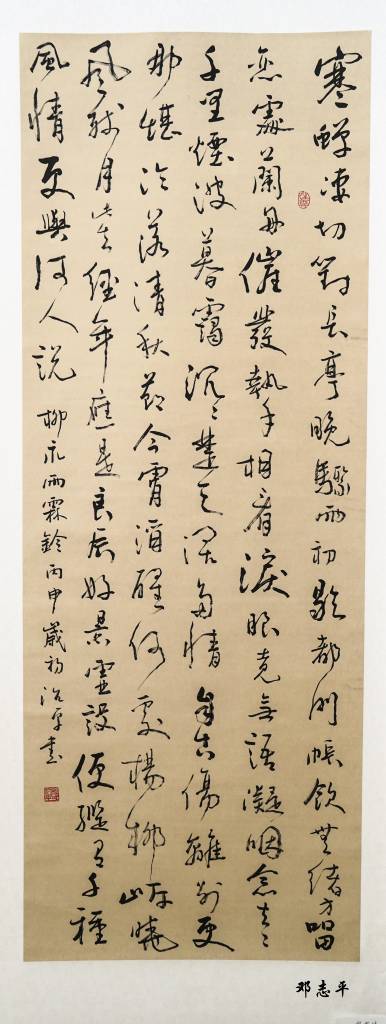 寒蟬凄切對長亭晚驟雨初歇都門帳飲無緒方留
恋處蘭舟催發執手相看淚眼竟無語凝咽念去々
千里煙波暮靄沉々楚天闊多情自古傷離別更
那堪冷落清秋節今宵酒醒何處楊柳岸曉
風殘月此去經年應是良辰好景虛設便縱有千種
風情更與何人說 柳永雨霖鈴丙申歲初治平書
邓志平